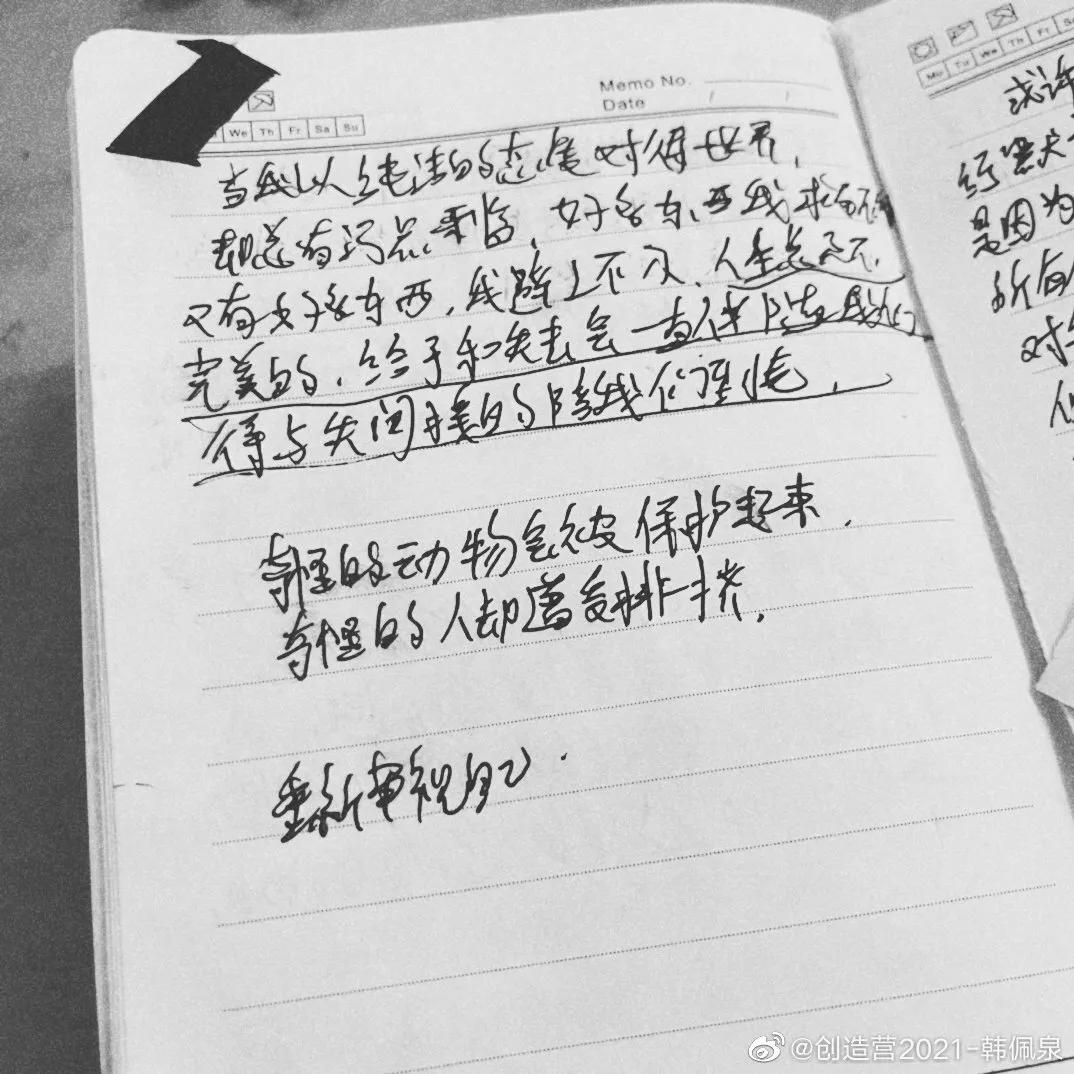 Memo No.
Date / /
We Th Fr Sa Su
当我以纯洁的态度对待世界,
却总有污点 好多东西我求
又有好多东西,我避之不及,人生总是不
完美的,给予和失去会一直伴随我们
得与失间接的陪我们
奇怪的动物会被保护起来,
奇怪的人却遭受排挤,
重新审视自己.
Mo Tu We Th Fr
是因为
所有
对
@创造营2021-韩佩泉